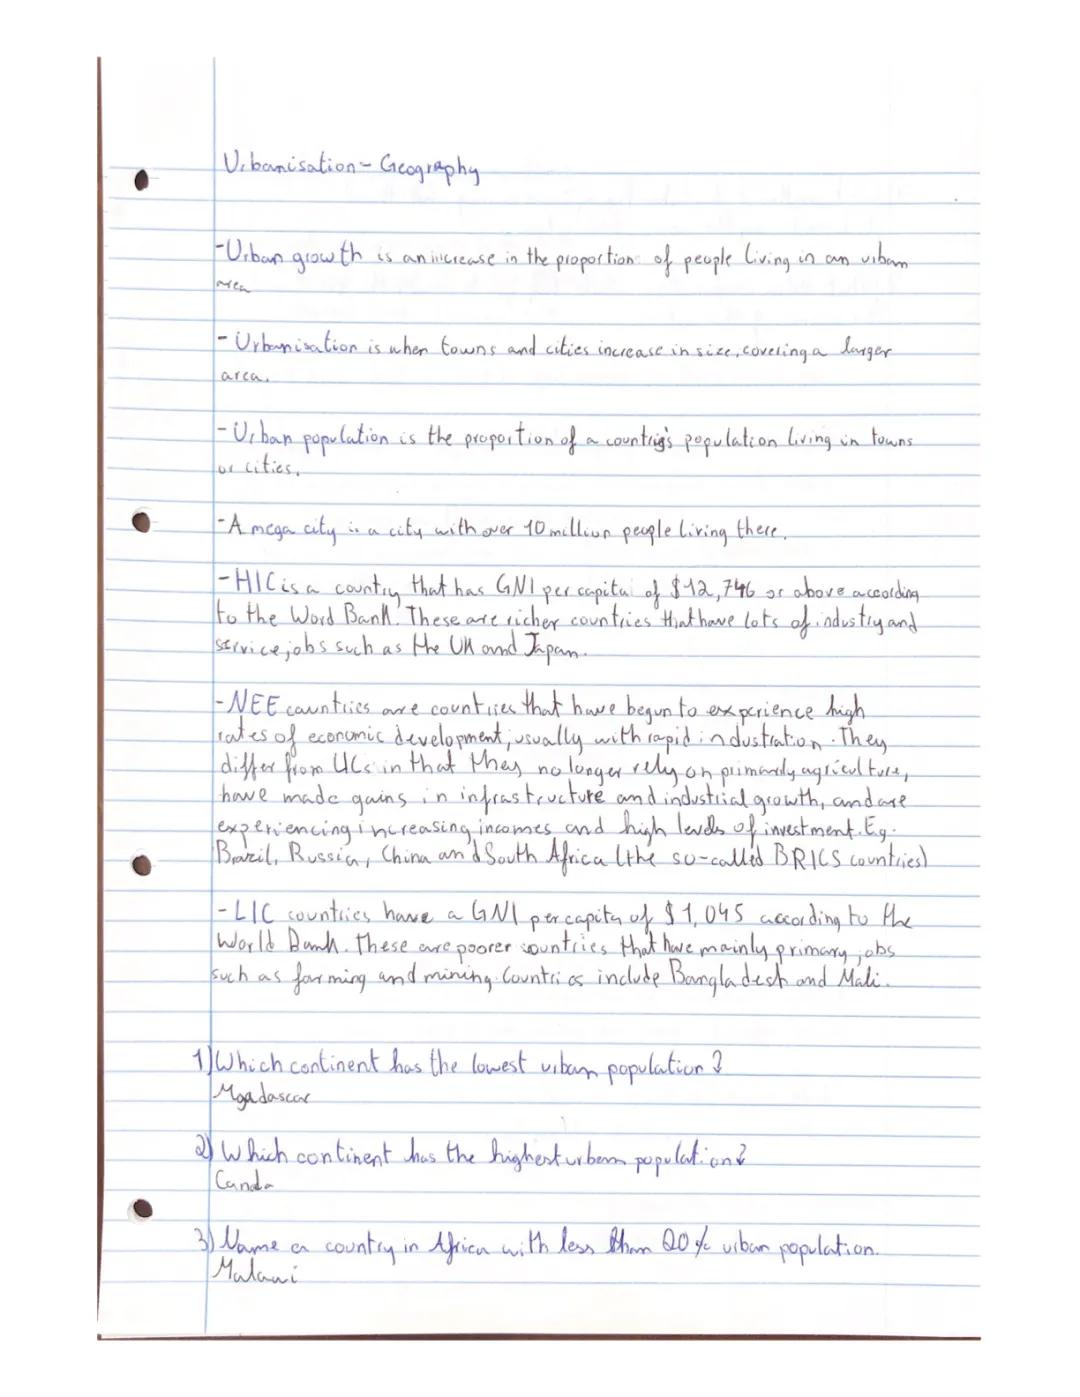 Urbanisation - Geography
- Urban growth is an increase in the proportion of people living in an urban
area
- Urbanisation is when towns and cities increase in size, covering a larger
area.
- Urban population is the proportion of a country's population living in towns
or cities.
- A mega city is a city with over 10 million people living there.
- HIC is a country that has GNI per capita of $12,746 or above according
to the Word Bank. These are richer countries that have lots of industry and
service jobs such as the UK and Japan.
- NEE countries are countries that have begun to experience high
rates of economic development, usually with rapid industration. They
differ from LICs in that they no longer rely on primarily agriculture,
have made gains in infrastructure and industrial growth, and are
experiencing increasing incomes and high levels of investment. Eg.
Brazil, Russia, China and South Africa (the so-called BRICS countries)
- LIC countries have a GNI per capita of $1,045 according to the
World Bank. These are poorer countries that have mainly primary jobs
such as farming and mining. Countries include Bangladesh and Mali.
1) Which continent has the lowest urban population?
Mgadascar
2) Which continent has the highest urban population?
Canda
3) Name a country in Africa with less than 20% urban population.
Malawi